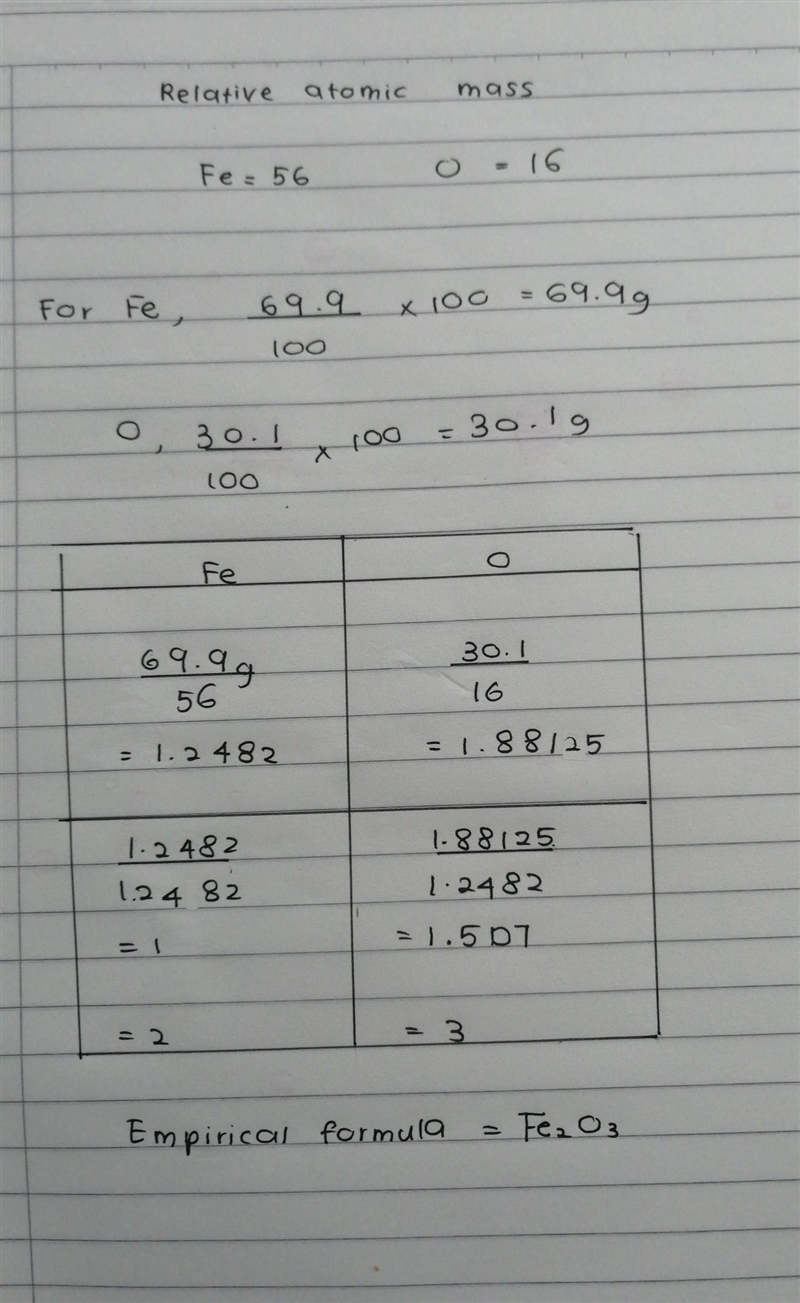 Relative atomic mass
Fe = 56 O = 16
For Fe, 69.9 / 100 × 100 = 69.9g
O, 30.1 / 100 × 100 = 30.1g
Fe O
69.9g / 56 30.1 / 16
= 1.2482 = 1.88125
1.2482 / 1.2482 1.88125 / 1.2482
= 1 = 1.507
= 2 = 3
Empirical formula = Fe₂O₃